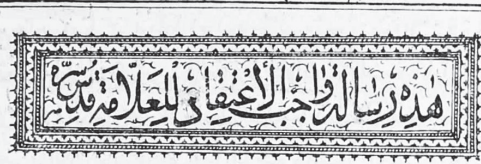 هذه رسالة واجب الاعتقاد للعلامة قدس سره